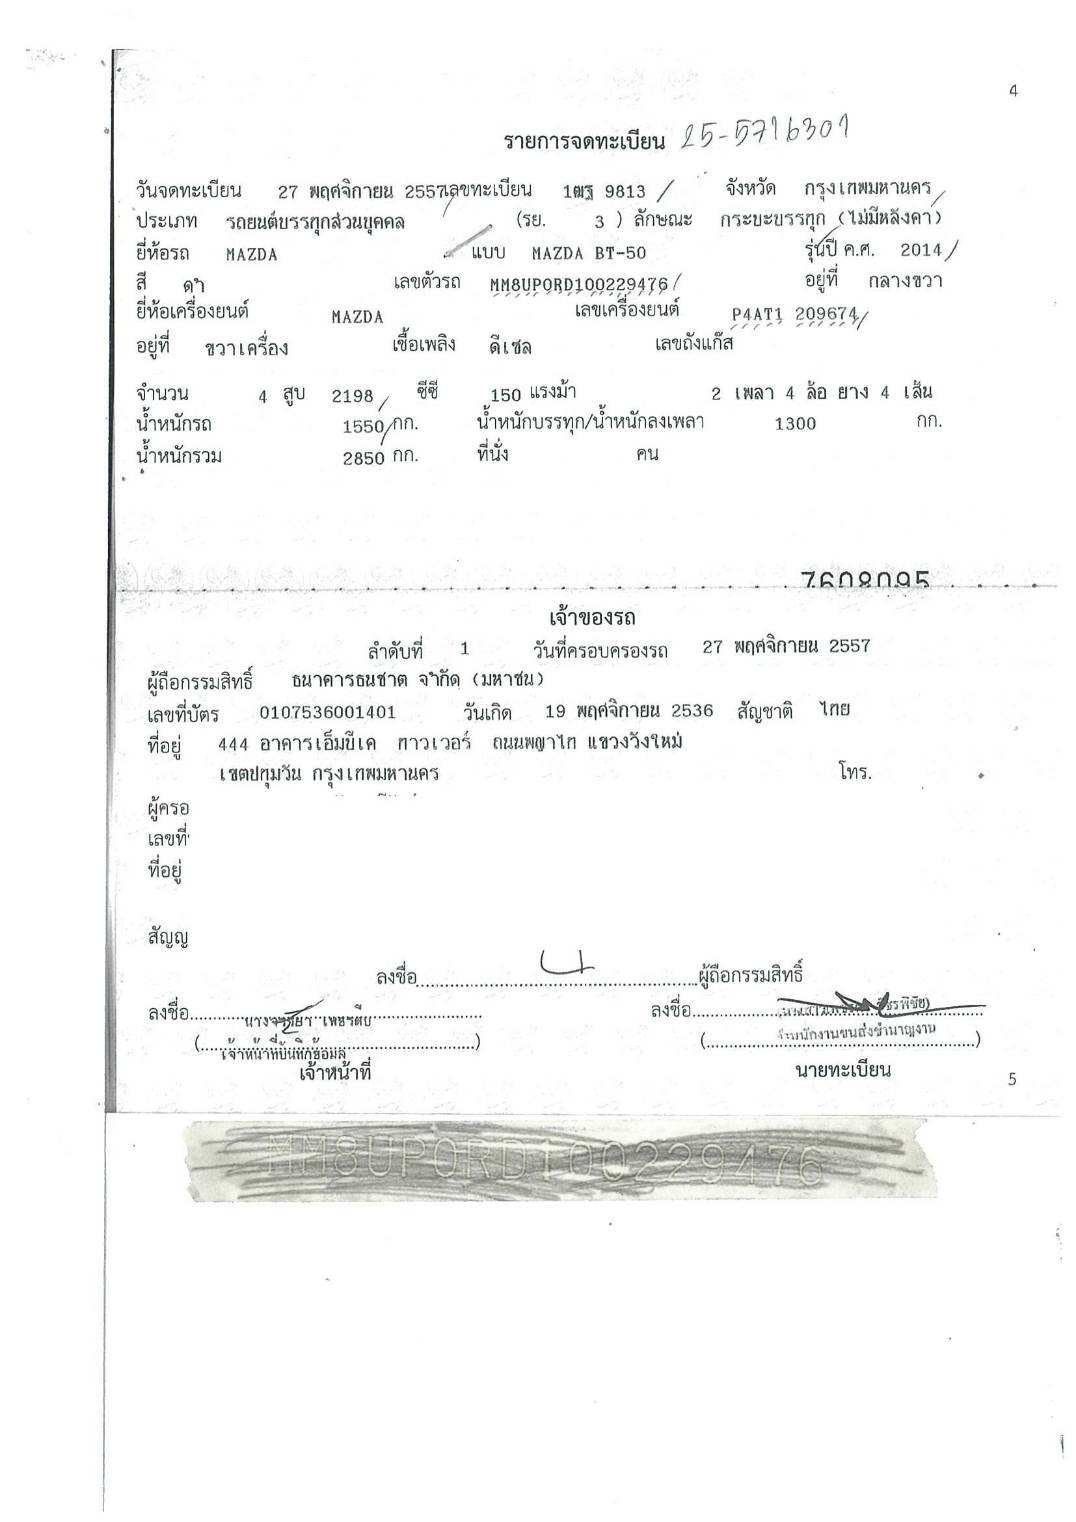 4
รายการจดทะเบียน 25-5716301
วันจดทะเบียน 27 พฤศจิกายน 2557 เลขทะเบียน 1ฒฐ 9813 จังหวัด กรุงเทพมหานคร
ประเภท รถยนต์บรรทุกส่วนบุคคล (รย. 3 ) ลักษณะ กระบะบรรทุก (ไม่มีหลังคา)
ยี่ห้อรถ MAZDA แบบ MAZDA BT-50 รุ่นปี ค.ศ. 2014
สี ดำ เลขตัวรถ MM8UP0RD100229476 อยู่ที่ กลางขวา
ยี่ห้อเครื่องยนต์ MAZDA เลขเครื่องยนต์ P4AT1 209674
อยู่ที่ ขวาเครื่อง เชื้อเพลิง ดีเซล เลขถังแก๊ส
จำนวน 4 สูบ 2198 ซีซี 150 แรงม้า 2 เพลา 4 ล้อ ยาง 4 เส้น
น้ำหนักรถ 1550 กก. น้ำหนักบรรทุก/น้ำหนักลงเพลา 1300 กก.
น้ำหนักรวม 2850 กก. ที่นั่ง คน
7608095
เจ้าของรถ
ลำดับที่ 1 วันที่ครอบครองรถ 27 พฤศจิกายน 2557
ผู้ถือกรรมสิทธิ์ ธนาคารธนชาต จำกัด (มหาชน)
เลขที่บัตร 0107536001401 วันเกิด 19 พฤศจิกายน 2536 สัญชาติ ไทย
ที่อยู่ 444 อาคารเอ็มบีเค ทาวเวอร์ ถนนพญาไท แขวงวังใหม่
เขตปทุมวัน กรุงเทพมหานคร โทร.
ผู้ครอ
เลขที่
ที่อยู่
สัญญ
ลงชื่อ ผู้ถือกรรมสิทธิ์
ลงชื่อ ลงชื่อ
(เจ้าหน้าที่บันทึกข้อมูล) (เจ้าพนักงานขนส่งชำนาญงาน)
เจ้าหน้าที่ นายทะเบียน
5
MM8UP0RD100229476